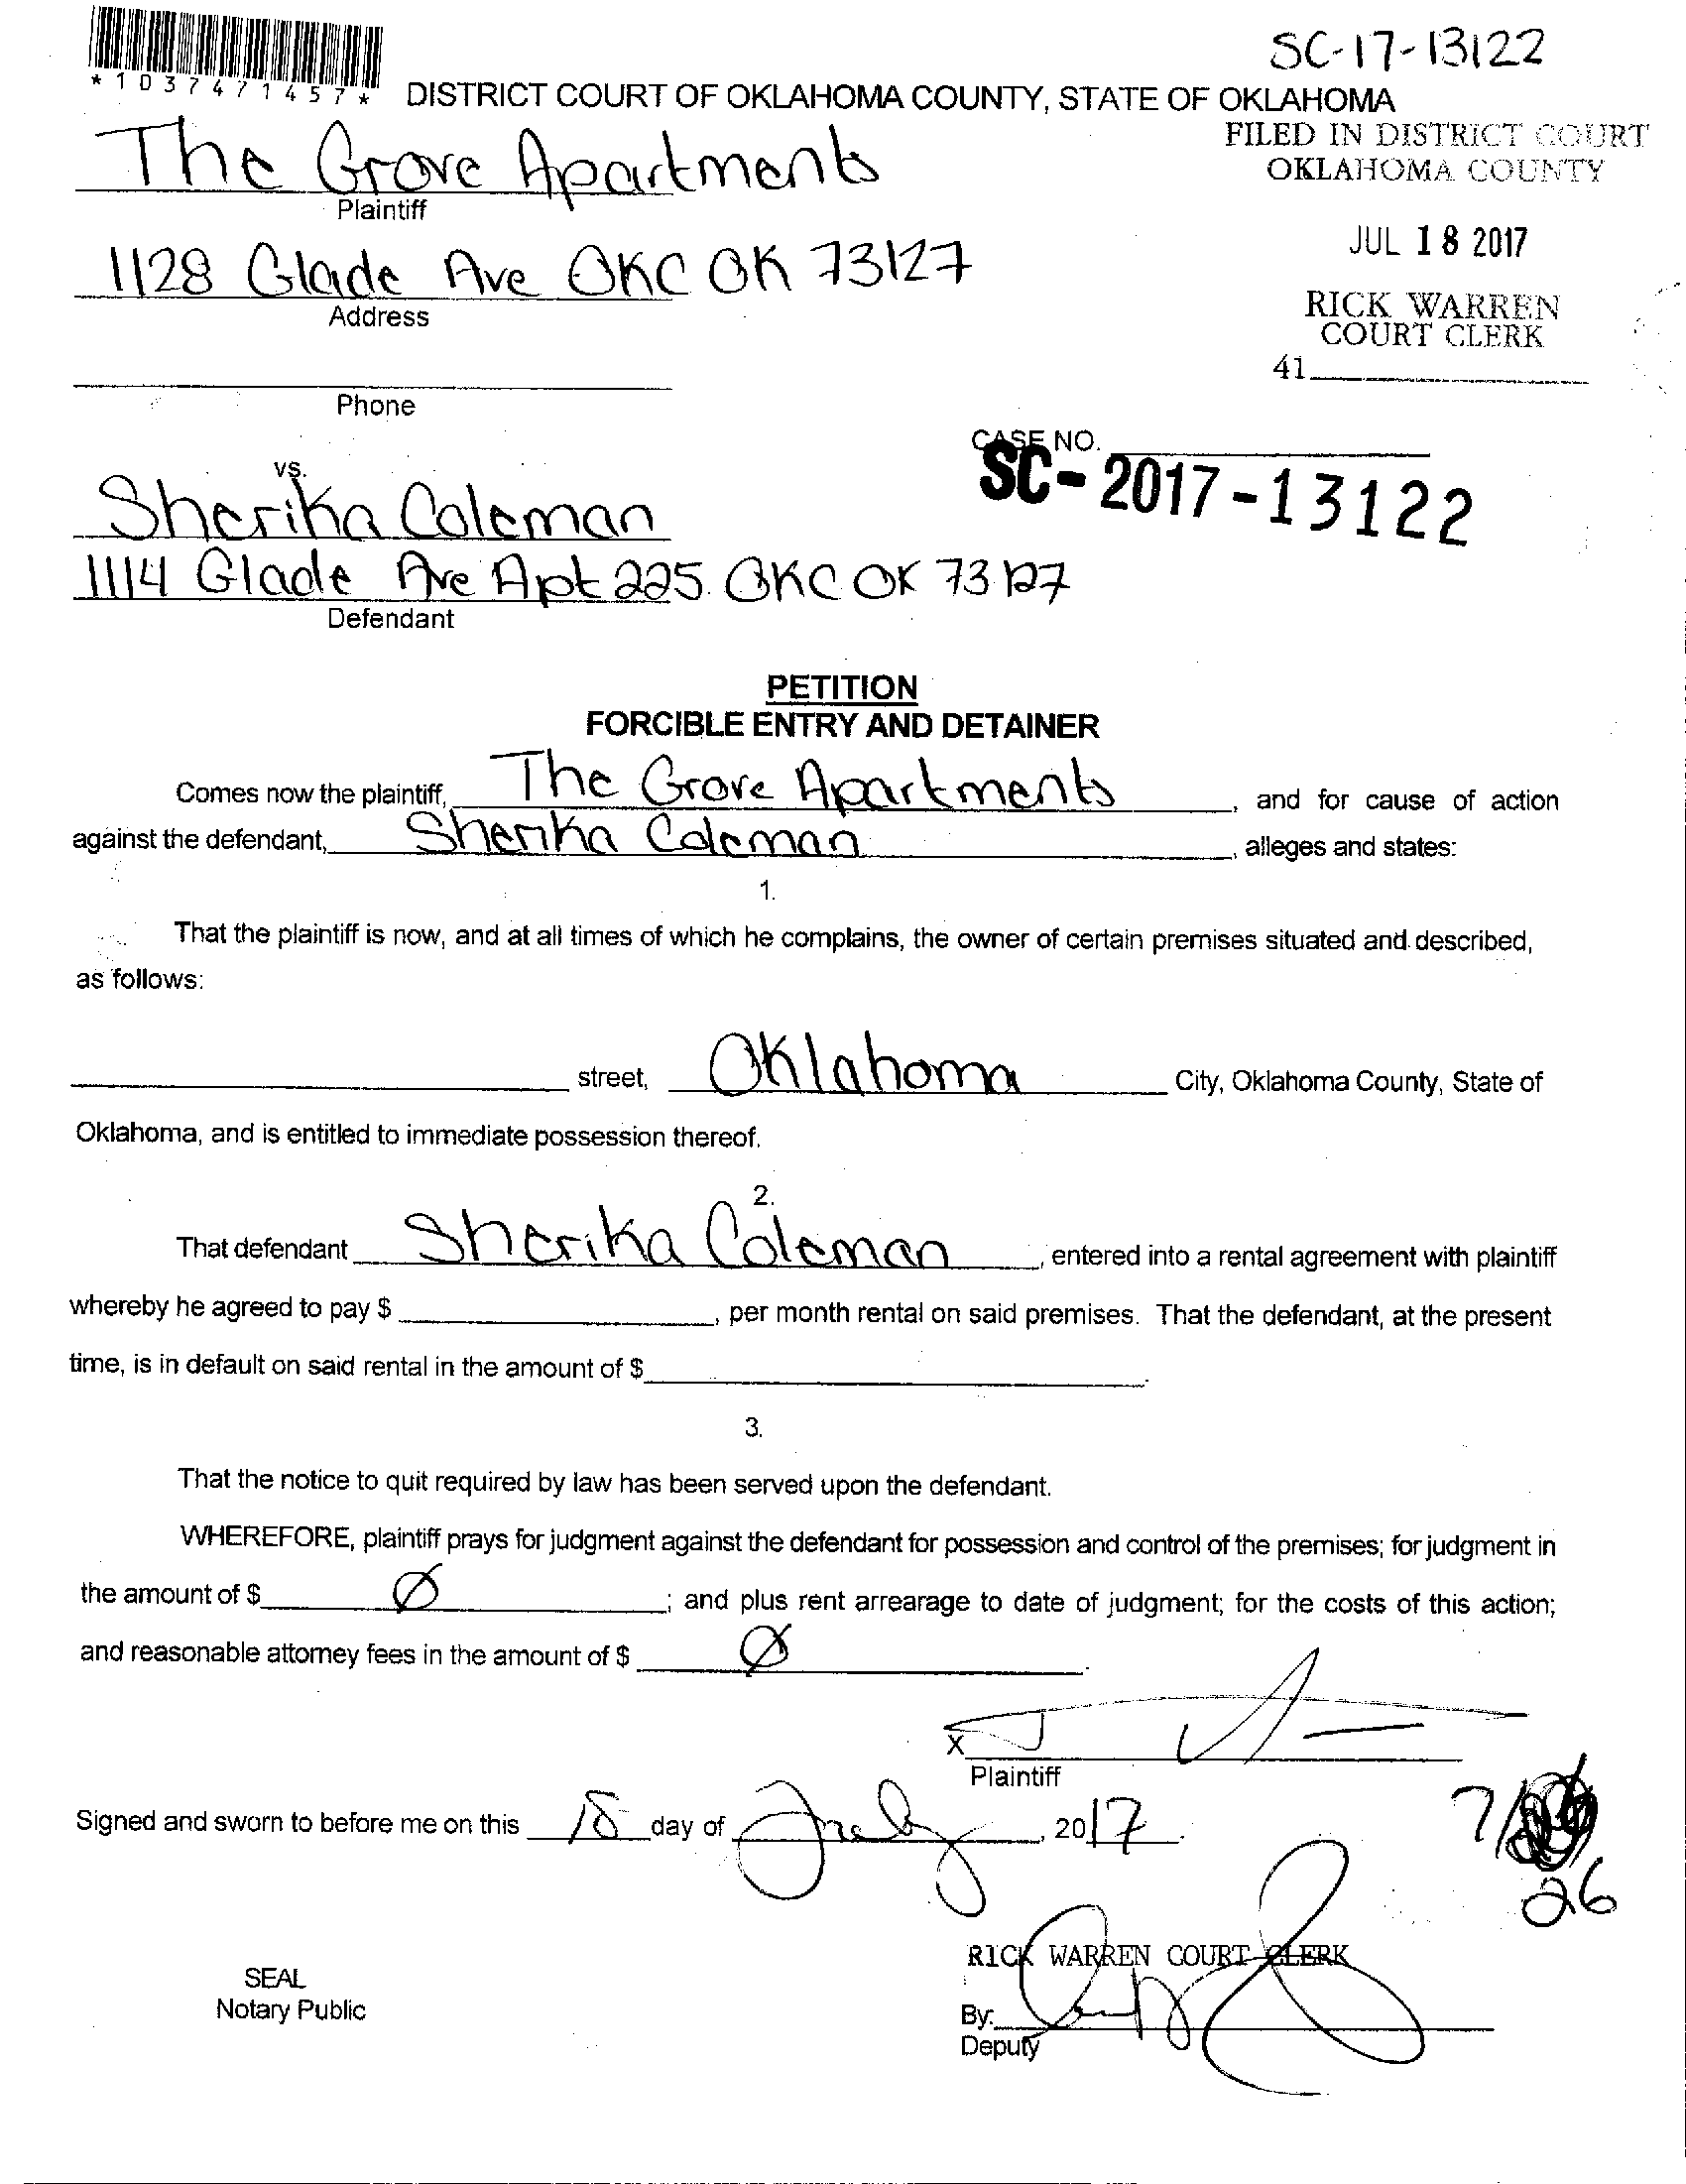 SC-17-13122
*1037471457*
DISTRICT COURT OF OKLAHOMA COUNTY, STATE OF OKLAHOMA
FILED IN DISTRICT COURT
OKLAHOMA COUNTY
The Grove Apartments
Plaintiff
JUL 18 2017
1128 Glade Ave OKC OK 73127
Address
RICK WARREN
COURT CLERK
41
Phone
CASE NO.
SC-2017-13122
vs.
Sherika Coleman
1114 Glade Ave Apt 225 OKC OK 73127
Defendant
PETITION
FORCIBLE ENTRY AND DETAINER
Comes now the plaintiff, The Grove Apartments, and for cause of action
against the defendant, Sherika Coleman, alleges and states:
1.
That the plaintiff is now, and at all times of which he complains, the owner of certain premises situated and described,
as follows:
street, Oklahoma City, Oklahoma County, State of
Oklahoma, and is entitled to immediate possession thereof.
2.
That defendant Sherika Coleman, entered into a rental agreement with plaintiff
whereby he agreed to pay $, per month rental on said premises. That the defendant, at the present
time, is in default on said rental in the amount of $.
3.
That the notice to quit required by law has been served upon the defendant.
WHEREFORE, plaintiff prays for judgment against the defendant for possession and control of the premises; for judgment in
the amount of $ Ø; and plus rent arrearage to date of judgment; for the costs of this action;
and reasonable attorney fees in the amount of $ Ø.
X
Plaintiff
Signed and sworn to before me on this 18 day of July, 2017.
7/
26
RICK WARREN COURT CLERK
SEAL
Notary Public
By:
Deputy